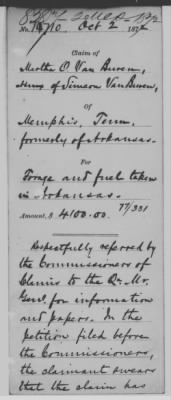 No. 14710. Oct 2 1872
Claim of
Martha A. Van Buren,
Admx of Simeon Van Buren,
Of
Memphis, Tenn,
formerly of Arkansas.
For
Forage and fuel taken
in Arkansas.
77/331
Amount, $ 4100.00.
Respectfully referred by
the Commissioners of
Claims to the Qr. Mr.
Genl. for information
and papers. In the
petition filed before
the Commissioners,
the claimant swears
that the claim has